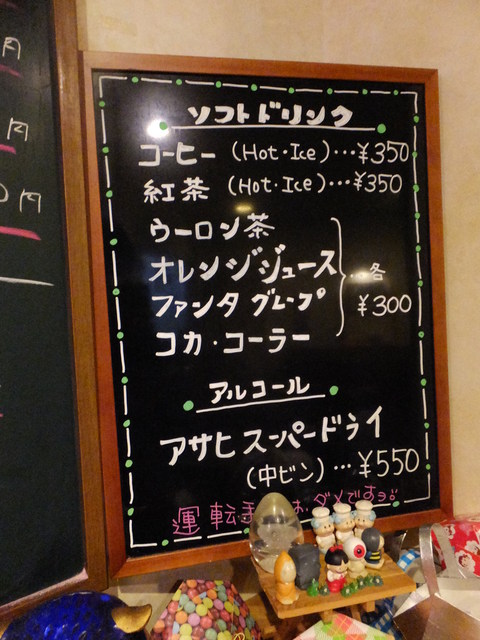 円
円
0円
ソフトドリンク
コーヒー (Hot・Ice)…¥350
紅茶 (Hot・Ice)…¥350
ウーロン茶
オレンジジュース
ファンタ グレープ
コカ・コーラー
…各
¥300
アルコール
アサヒスーパードライ
(中ビン)…¥550
運転手 お ダメですヨ。